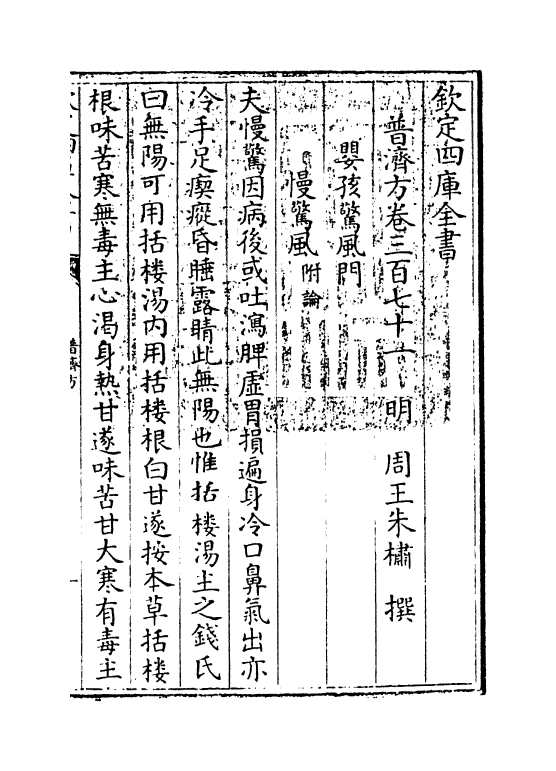 欽定四庫全書
普濟方卷三百七十一　明　周王朱橚　撰
嬰孩驚風門
慢驚風附論
夫慢驚因病後或吐瀉脾虚胃損遍身冷口鼻氣出亦
冷手足瘈瘲昏睡露睛此無陽也惟括樓湯主之錢氏
曰無陽可用括樓湯内用括樓根白甘遂按本草括樓
根味苦寒無毒主心渴身熱甘遂味苦甘大寒有毒主
普濟方
一